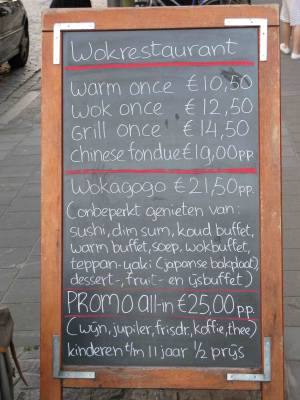 Wokrestaurant
warm once €10,50
wok once €12,50
Grill once €14,50
chinese fondue €19,00 p.p.
Wokagogo €21,50 p.p.
(onbeperkt genieten van:
sushi, dim sum, koud buffet,
warm buffet, soep, wokbuffet,
teppan-yaki (japanse bakplaat),
dessert-, fruit- en ijsbuffet)
PROMO all-in €25,00 p.p.
(wijn, jupiler, frisdr., koffie, thee)
kinderen t/m 11 jaar 1/2 prijs